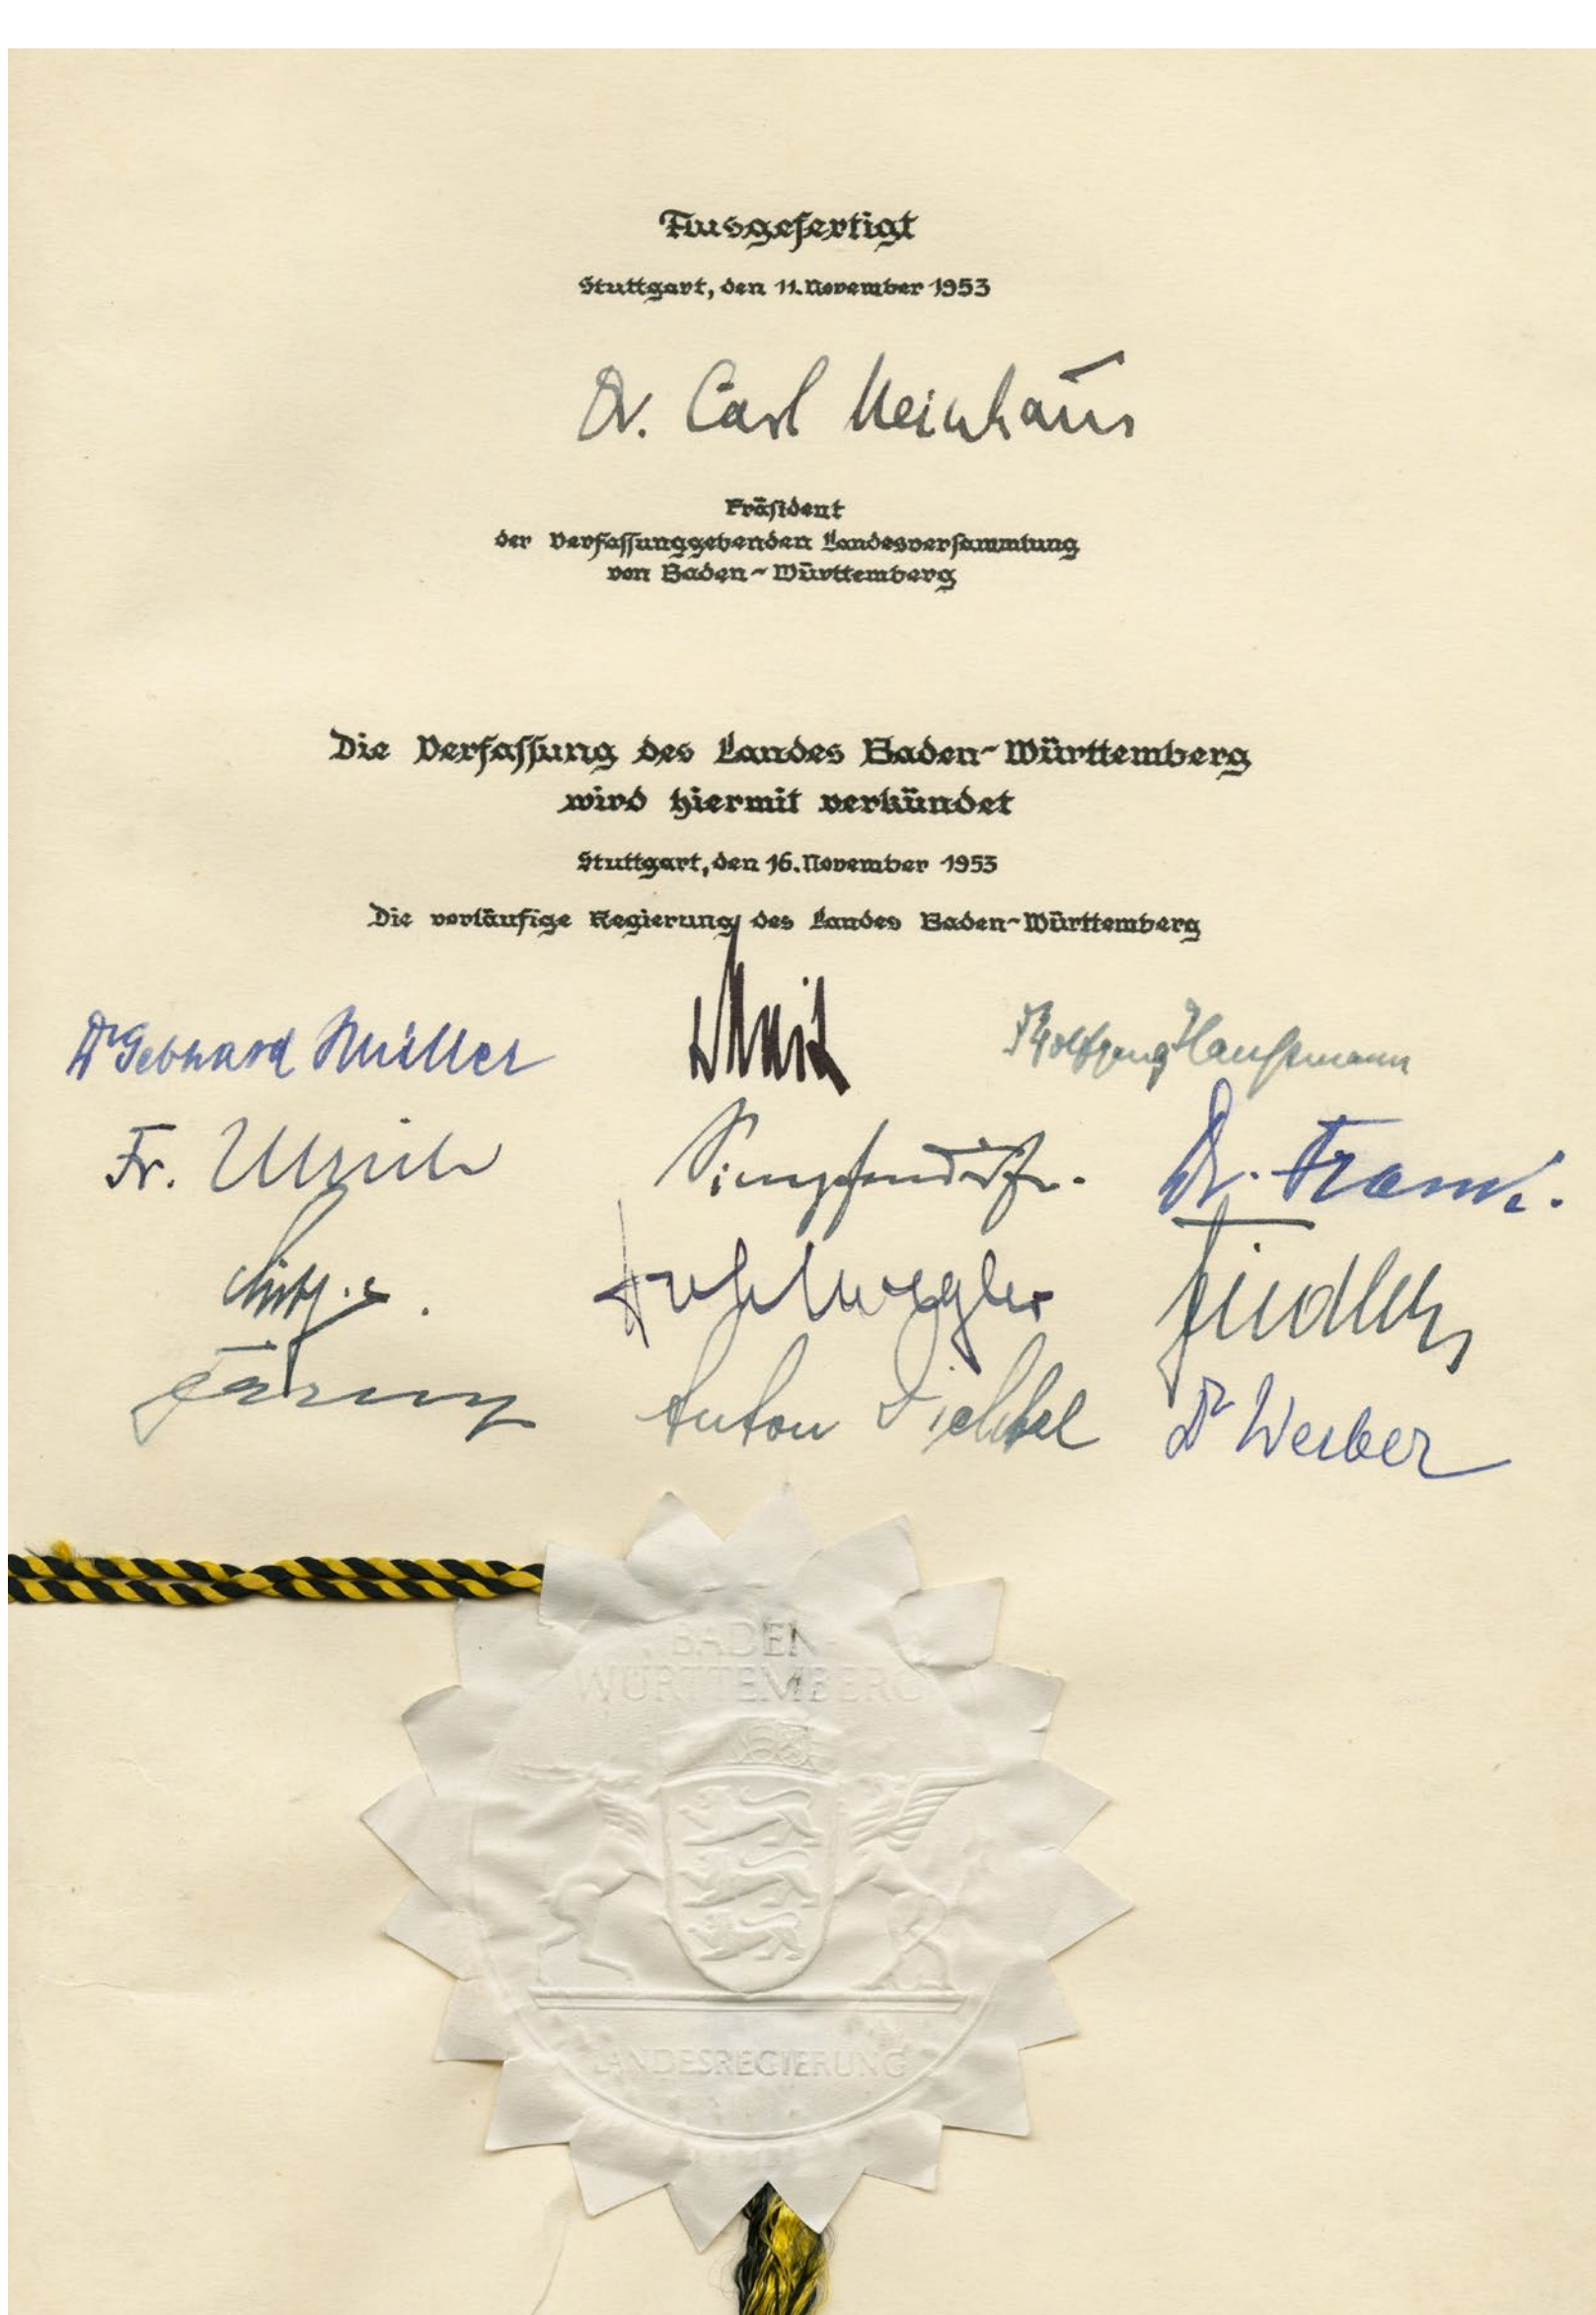 Ausgefertigt
Stuttgart, den 11. November 1953
Dr. Carl Neinhaus
Präsident
der Verfassunggebenden Landesversammlung
von Baden-Württemberg
Die Verfassung des Landes Baden-Württemberg
wird hiermit verkündet
Stuttgart, den 16. November 1953
Die vorläufige Regierung des Landes Baden-Württemberg
Dr Gebhard Müller Veit Wolfgang Haußmann
Fr. Ulrich Simpfendörfer Dr. Frank.
Hohlwegler Fiedler
Farny Anton Dichtel Dr Werber
BADEN-
WÜRTTEMBERG
LANDESREGIERUNG